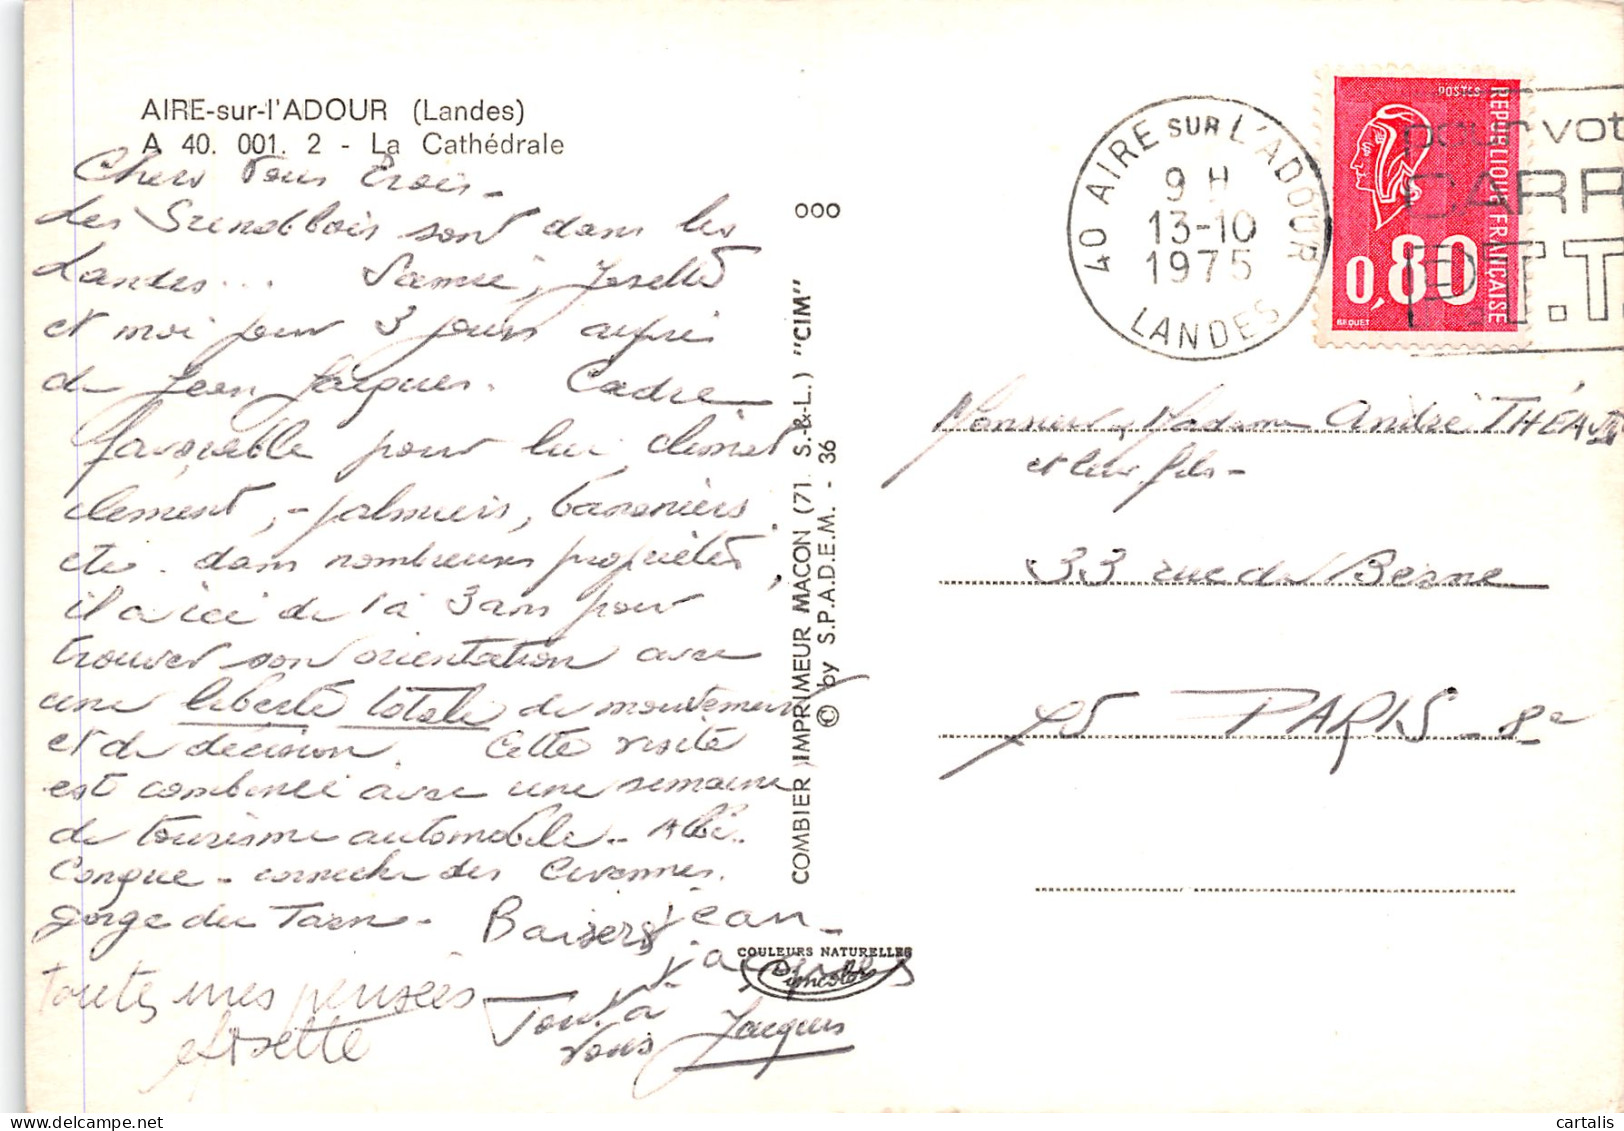 AIRE-sur-l'ADOUR (Landes)
A 40. 001. 2 - La Cathédrale
Chers Vous Trois -
Les Grenoblois sont dans les
Landes...
et moi pour 3 jours auprès
de Jean Jacques. Cadre
favorable pour lui, climat
clément, - palmiers, bananiers
etc. dans nombreuses propriétés,
il a ici de 1 à 3 ans pour
trouver son orientation avec
une liberté totale de mouvement
et de décision. Cette visite
est combinée avec une semaine
de tourisme automobile - Albi -
Conque - corniche des Cévennes.
gorge du Tarn - Baisers jean-
jacques
toutes mes pensées
Josette
Tout à
vous Jacques
OOO
COMBIER IMPRIMEUR MACON (71. S.-&-L.) "CIM"
© by S.P.A.D.E.M. - 36
COULEURS NATURELLES
Cimcolor
40 AIRE SUR L'ADOUR
9 H
13-10
1975
LANDES
POSTES
REPUBLIQUE FRANÇAISE
0,80
BEQUET
pour vot
CARR
P.T.T
Monsieur, Madame André
et leur fils -
33 rue de Berne
75 PARIS - 8e
cartalis
delcampe.net